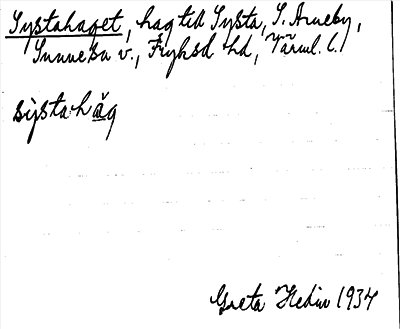 Systahaget, hag till Systa, S. Arneby,
Sunnemo v., Fryksd hd, Värml. l.
systahăg
Greta Hedin 1934